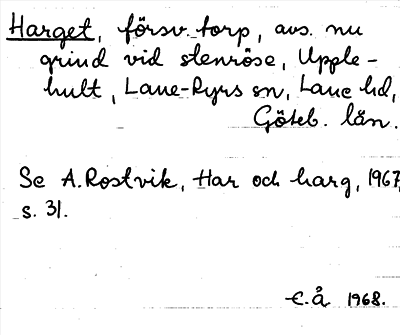 Harget, försv. torp, avs. nu
grind vid stenröse, Upple-
hult, Lane-Ryrs sn, Lane hd,
Göteb. län.
Se A. Rostvik, Har och harg, 1967,
s. 31.
E.Å 1968.